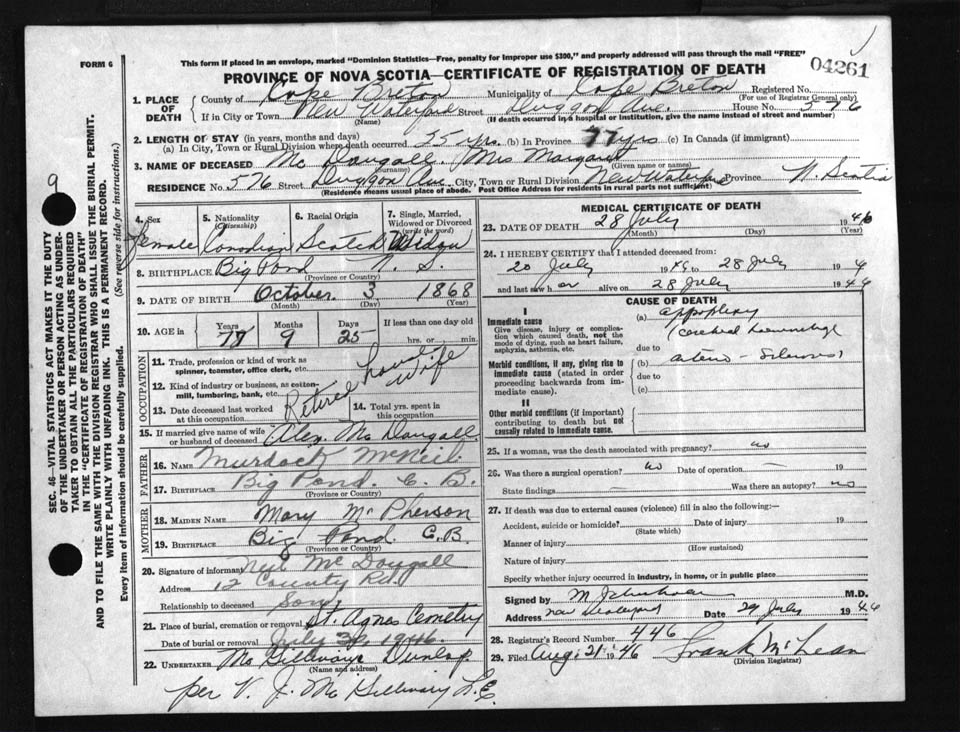 This form if placed in an envelope, marked "Dominion Statistics—Free, penalty for improper use $300," and properly addressed will pass through the mail "FREE"
FORM 6
04261
PROVINCE OF NOVA SCOTIA—CERTIFICATE OF REGISTRATION OF DEATH
1. PLACE OF DEATH
County of Cape Breton Municipality of Cape Breton Registered No.
(For use of Registrar General only)
If in City or Town New Waterford Street Duggan Ave. House No. 576
(Name) (If death occurred in a hospital or institution, give the name instead of street and number)
2. LENGTH OF STAY (in years, months and days)
(a) In City, Town or Rural Division where death occurred 35 yrs. (b) In Province 77 yrs (c) In Canada (if immigrant)
3. NAME OF DECEASED Mc Dougall. Mrs Margaret
(Surname) (Given name or names)
RESIDENCE No. 576 Street Duggan Ave City, Town or Rural Division New Waterford Province N. Scotia
(Residence means usual place of abode. Post Office Address for residents in rural parts not sufficient)
4. Sex
Female
5. Nationality (Citizenship)
Canadian
6. Racial Origin
Scotch
7. Single, Married, Widowed or Divorced (write the word)
Widow
8. BIRTHPLACE Big Pond N. S.
(Province or Country)
9. DATE OF BIRTH October 3 1868
(Month) (Day) (Year)
10. AGE in
Years Months Days If less than one day old
77 9 25 hrs. or min.
OCCUPATION
11. Trade, profession or kind of work as spinner, teamster, office clerk, etc.
housewife
12. Kind of industry or business, as cotton-mill, lumbering, bank, etc.
13. Date deceased last worked at this occupation
Retired
14. Total yrs. spent in this occupation
15. If married give name of wife or husband of deceased Alex. Mc Dougall.
FATHER
16. NAME Murdock McNeil
17. BIRTHPLACE Big Pond. C. B.
(Province or Country)
MOTHER
18. MAIDEN NAME Mary McPherson
19. BIRTHPLACE Big Pond. C.B.
(Province or Country)
20. Signature of informant Neil McDougall
Address 12 County Rd.
Relationship to deceased Son
21. Place of burial, cremation or removal St. Agnes Cemetry
Date of burial or removal July 1946.
22. UNDERTAKER Mc Gillivary Dunlop
(Name and address)
per V. J. McGillivary
MEDICAL CERTIFICATE OF DEATH
23. DATE OF DEATH 28 July 1946
(Month) (Day) (Year)
24. I HEREBY CERTIFY that I attended deceased from:
20 July 19 to 28 July 19
and last saw h er alive on 28 July 1946
CAUSE OF DEATH
I
Immediate cause
Give disease, injury or complication which caused death, not the mode of dying, such as heart failure, asphyxia, asthenia, etc.
(a) appoplexy
cerebral
due to
Morbid conditions, if any, giving rise to immediate cause (stated in order proceeding backwards from immediate cause).
(b)
due to
(c)
II
Other morbid conditions (if important) contributing to death but not causally related to immediate cause.
25. If a woman, was the death associated with pregnancy? no
26. Was there a surgical operation? no Date of operation 19
State findings Was there an autopsy? no
27. If death was due to external causes (violence) fill in also the following:—
Accident, suicide or homicide? Date of injury 19
(State which)
Manner of injury
(How sustained)
Nature of injury
Specify whether injury occurred in industry, in home, or in public place
Signed by M. M.D.
Address New Waterford Date 29 July 1946
28. Registrar's Record Number 446
29. Filed Aug. 21 1946 Frank McLean
(Division Registrar)
SEC. 46—VITAL STATISTICS ACT MAKES IT THE DUTY
OF THE UNDERTAKER OR PERSON ACTING AS UNDER-
TAKER TO OBTAIN ALL THE PARTICULARS REQUIRED
IN THE "CERTIFICATE OF REGISTRATION OF DEATH"
AND TO FILE THE SAME WITH THE DIVISION REGISTRAR WHO SHALL ISSUE THE BURIAL PERMIT.
(See reverse side for instructions.)
WRITE PLAINLY WITH UNFADING INK. THIS IS A PERMANENT RECORD.
Every item of information should be carefully supplied.
9